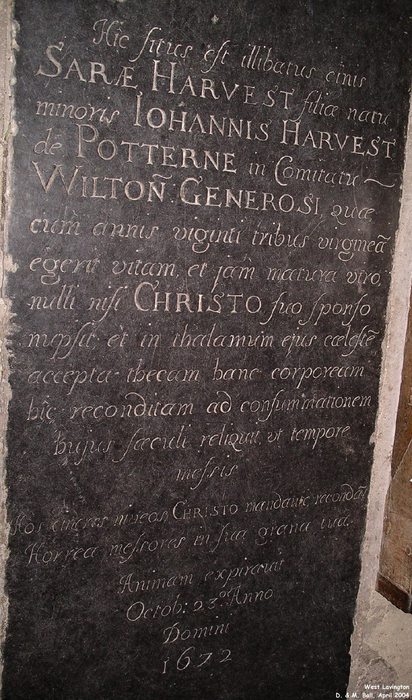 Hic situs est illibatus cinis
SARÆ HARVEST filiæ natu
minoris IOHANNIS HARVEST
de POTTERNE in Comitatu
WILTOÑ: GENEROSI, quæ
cum̃ annis viginti tribus virgineã
egerit vitam, et jam matura viro
nulli nisi CHRISTO suo sponso
nupsit, et in thalamum ejus cælestẽ
accepta thecam hanc corpoream
hic reconditam ad consummationem
hujus sæculi reliquit, ut tempore
messis
Hos cineres niveos CHRISTO mandante, recondãt
Horrea messores in sua grana tua.
Animam expiravit
Octob: 23º Anno
Domini
1672
West Lavington
D. & M. Ball, April 2004